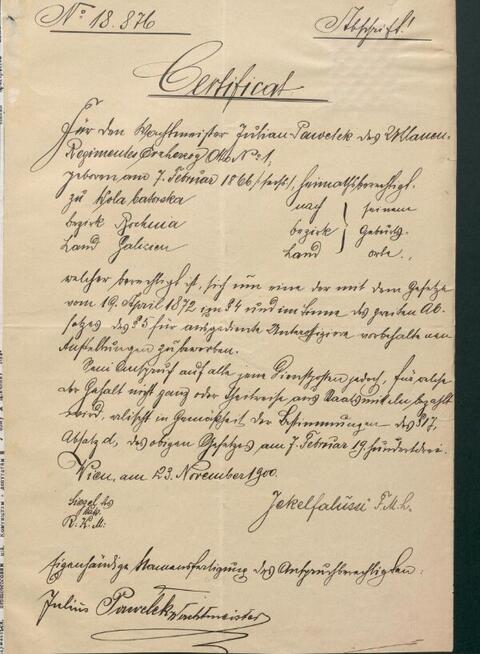 No 18.876
Abschrift!
Certificat
Für den Wachtmeister Julian Pawelek des Uhlanen-
Regimentes Erzherzog Otto No 1,
geboren am 7. Februar 1866/sechs/, heimathsberechtigt
zu Wola nach seinem
bezirk Bochnia bezirk Geburts-
Land Galizien Land orte.,
welcher berechtigt ist, sich um eine der mit dem Gesetze
vom 19. April 1872 im § 4 und im Sinne des zweiten Ab-
satzes des § 5 für ausgediente Unteroffiziere vorbehaltenen
Anstellungen zu bewerben.
Sein Anspruch auf alle jene Dienstposten jedoch, für welche
der Gehalt nicht ganz oder theilweise aus Staatsmitteln bezahlt
wird, erlischt in Gemäßheit der Bestimmungen des § 7,
Absatz d, des obigen Gesetzes am 7. Februar 19.hundertdrei.
Wien, am 23. November 1900.
Siegel des
R. K. M. Jekelfalussi F.M.L.
Eigenhändige Namensfertigung des Anspruchberechtigten:
Julius Pawelek Wachtmeister